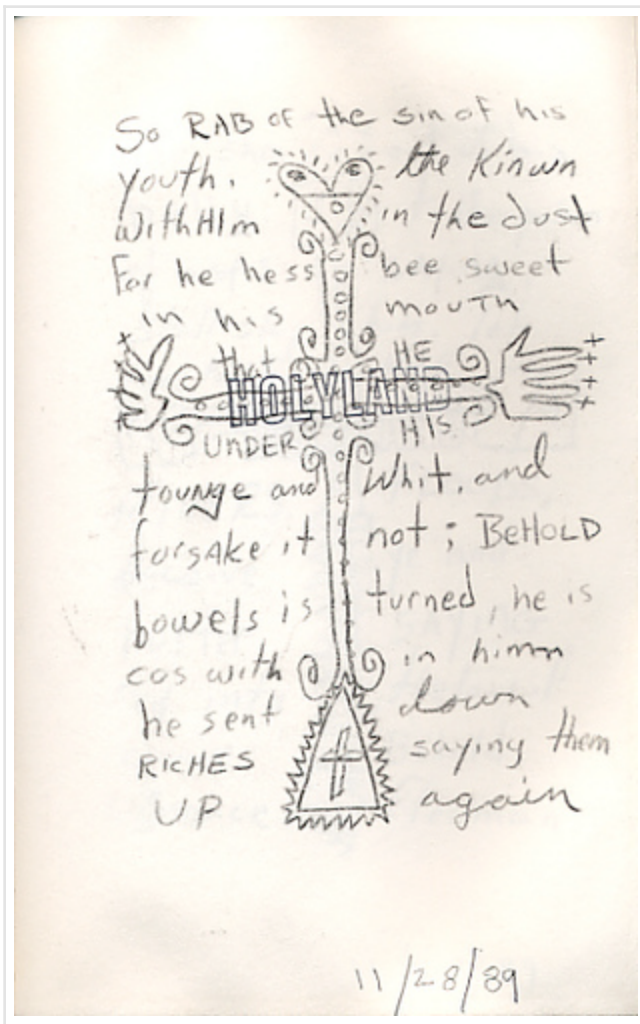 So RAB of the sin of his
youth. the Kinwn
with HIm in the dust
For he hess bee sweet
in his mouth
that HE
HOLYLAND
UNDER HIS
tounge and Whit, and
forsake it not; BeHOLD
bowels is turned, he is
cos with in himm
he sent down
RICHES saying them
UP again
11/28/89